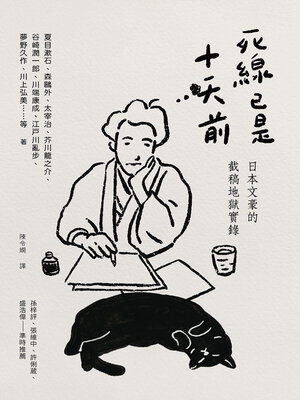 死線已是
十天前
日本文豪的
截稿地獄實錄
夏目漱石、森鷗外、太宰治、芥川龍之介、
谷崎潤一郎、川端康成、江戶川亂步、
夢野久作、川上弘美……等 著
陳令嫻 譯
孫梓評、張維中、許俐葳、
盛浩偉——準時推薦